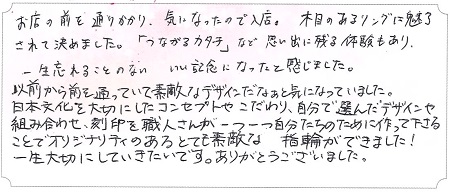 お店の前を通りかかり、気になったので入店。木目のあるリングに魅了
されて決めました。「つながるカタチ」など思い出に残る体験もあり、
一生忘れることのない いい記念になったと感じました。
以前から前を通っていて素敵なデザインだなぁと気になっていました。
日本文化を大切にしたコンセプトやこだわり、自分で選んだデザインや
組み合わせ、刻印を職人さんが一つ一つ自分たちのために作って下さる
ことでオリジナリティのあるとても素敵な 指輪ができました!
一生大切にしていきたいです。ありがとうございました。